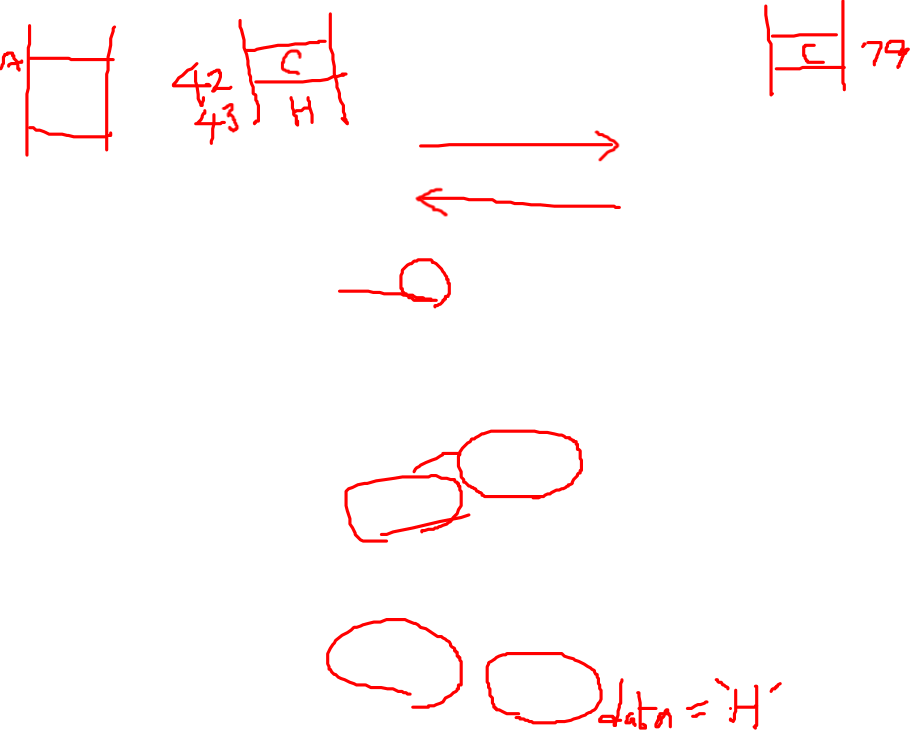 A
42 C
43 H
C 79
data = 'H'